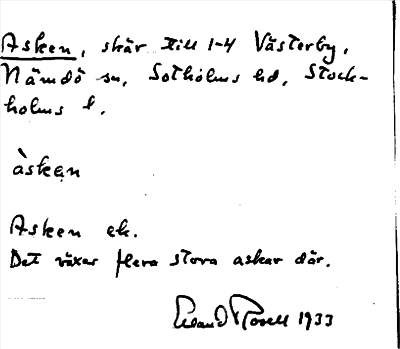 Asken, skär till 1-4 Västerby,
Nämdö sn, Sotholms hd, Stock-
holms l.
àskęn
Asken ek.
Det växer flera stora askar där.
Erland Rosell 1933